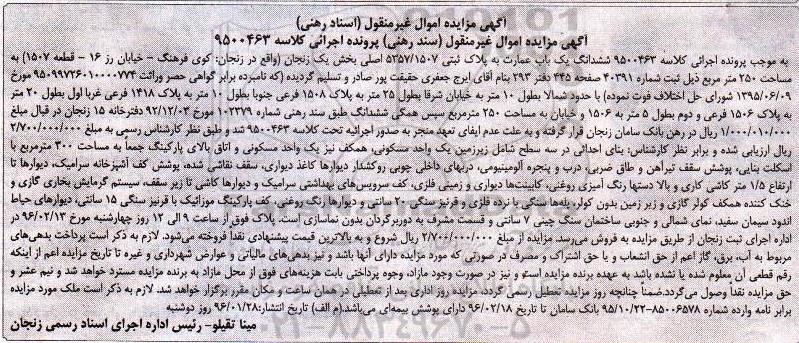 آگهی مزایده اموال غیرمنقول (اسناد رهنی)
آگهی مزایده اموال غیرمنقول (سند رهنی) پرونده اجرائی کلاسه ۹۵۰۰۴۶۳
به موجب پرونده اجرائی کلاسه ۹۵۰۰۴۶۳ ششدانگ یک باب عمارت به پلاک ثبتی ۵۳۵۷/۱۵۰۷ اصلی بخش یک زنجان (واقع در زنجان: کوی فرهنگ - خیابان رز ۱۶ - قطعه ۱۵۰۷) به
مساحت ۲۵۰ متر مربع ذیل ثبت شماره ۴۰۳۹۱ صفحه ۴۴۵ دفتر ۲۹۳ بنام آقای ایرج جعفری حقیقت پور صادر و تسلیم گردیده (که نامبرده برابر گواهی حصر وراثت ۹۵۰۹۹۷۲۶۰۱۰۰۰۰۷۷۴ مورخ
۱۳۹۵/۰۶/۰۹ شورای حل اختلاف فوت نموده) با حدود شمالا بطول ۱۰ متر به خیابان شرقا بطول ۲۵ متر به پلاک ۱۵۰۸ فرعی جنوبا بطول ۱۰ متر به پلاک ۱۴۱۸ فرعی غربا اول بطول ۲۰ متر
به پلاک ۱۵۰۶ فرعی و دوم بطول ۵ متر به ۱۵۰۶ و خیابان به مساحت ۲۵۰ مترمربع سپس همگی ششدانگ طبق سند رهنی شماره ۱۰۲۳۷۹ مورخ ۹۲/۱۲/۰۳ دفترخانه ۱۵ زنجان در قبال مبلغ
۱/۰۰۰/۰۱۰/۰۰۰ ریال در رهن بانک سامان زنجان قرار گرفته و به علت عدم ایفای تعهد منجر به صدور اجرائیه تحت کلاسه ۹۵۰۰۴۶۳ شد و طبق نظر کارشناس رسمی به مبلغ ۲/۷۰۰/۰۰۰/۰۰۰
ریال ارزیابی شده و برابر نظر کارشناس: بنای احداثی در سه سطح شامل زیرزمین یک واحد مسکونی، همکف نیز یک واحد مسکونی و اتاق بالای پارکینگ جمعا به مساحت ۳۰۰ مترمربع با
اسکلت بنایی، پوشش سقف تیرآهن و طاق ضربی، درب و پنجره آلومینیومی، دربهای داخلی چوبی روکشدار دیوارها کاغذ دیواری، سقف نقاشی شده، پوشش کف آشپزخانه سرامیک، دیوارها تا
ارتفاع ۱/۵ متر کاشی کاری و بالا دستها رنگ آمیزی روغنی، کابینت‌ها دیواری و زمینی فلزی، کف سرویس‌های بهداشتی سرامیک و دیوارها کاشی تا زیر سقف، سیستم گرمایش بخاری گازی و
خنک کننده همکف کولر گازی و زیر زمین بدون کولر، پله‌ها سنگی با نرده فلزی و قرنیز سنگی ۲۰ سانتی و دیوارها رنگ روغنی، کف پارکینگ موزائیک با قرنیز سنگی ۱۵ سانتی، دیوارهای حیاط
اندود سیمان سفید، نمای شمالی و جنوبی ساختمان سنگ چینی ۷ سانتی و قسمت مشرف به دوربرگردان بدون نماسازی است. پلاک فوق از ساعت ۹ الی ۱۲ روز چهارشنبه مورخ ۹۶/۰۲/۱۳ در
اداره اجرای ثبت زنجان از طریق مزایده به فروش می‌رسد. مزایده از مبلغ ۲/۷۰۰/۰۰۰/۰۰۰ ریال شروع و به بالاترین قیمت پیشنهادی نقداً فروخته می‌شود. لازم به ذکر است پرداخت بدهی‌های
مربوط به آب، برق، گاز اعم از حق انشعاب و یا حق اشتراک و مصرف در صورتی که مورد مزایده دارای آنها باشد و نیز بدهی‌های مالیاتی و عوارض شهرداری و غیره تا تاریخ مزایده اعم از اینکه
رقم قطعی آن معلوم شده یا نشده باشد به عهده برنده مزایده است و نیز در صورت وجود مازاد، وجوه پرداختی بابت هزینه‌های فوق از محل مازاد به برنده مزایده مسترد خواهد شد و نیم عشر و
حق مزایده نقداً وصول می‌گردد. ضمناً چنانچه روز مزایده تعطیل رسمی گردد، مزایده روز اداری بعد از تعطیلی در همان ساعت و مکان مقرر برگزار خواهد شد. لازم به ذکر است ملک مورد مزایده
برابر نامه وارده شماره ۸۵۰۰۶۵۷۸-۹۵/۱۰/۲۲ بانک سامان تا تاریخ ۹۶/۰۲/۱۸ دارای پوشش بیمه‌ای می‌باشد. (م الف) تاریخ انتشار: ۹۶/۰۱/۲۸ روز دوشنبه
مینا تقیلو- رئیس اداره اجرای اسناد رسمی زنجان
۰۲۱-۸۸۳۴۹۶۷۰-۵